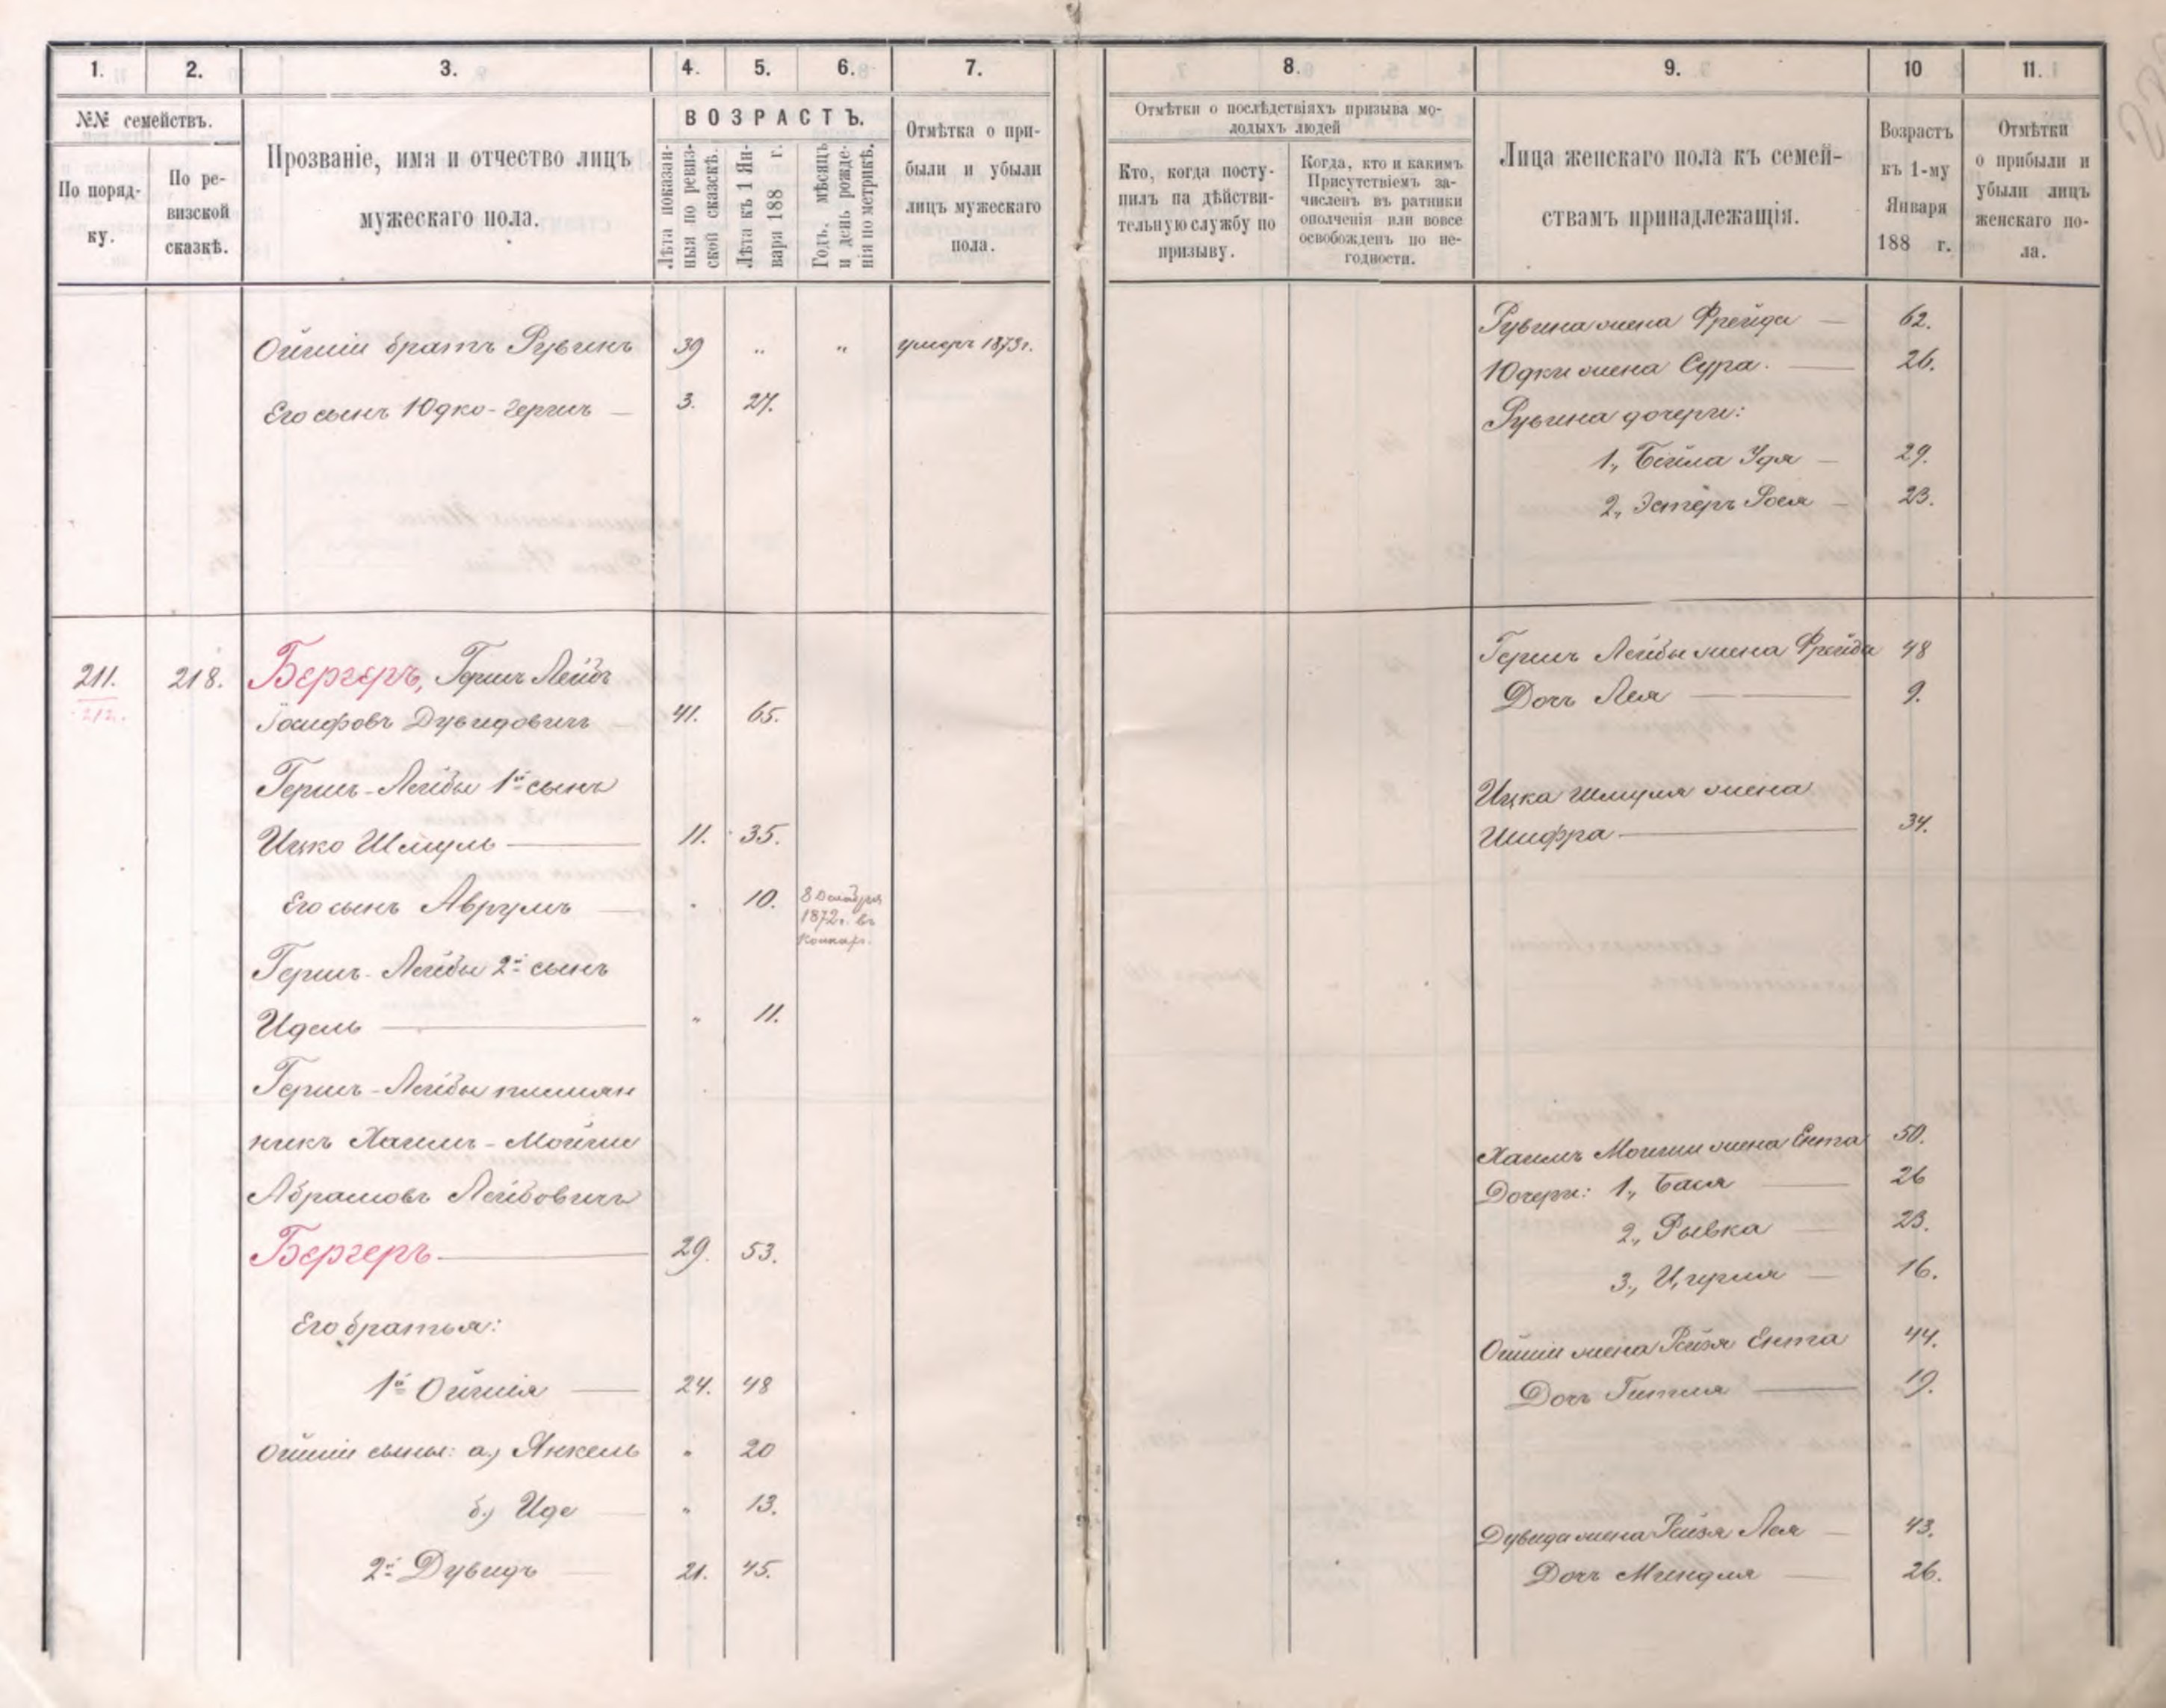 1.
2.
3.
4.
5.
6.
7.
8.
9.
10
11.
№№ семействъ.
По поряд-
ку.
По ре-
визской
сказкѣ.
Прозваніе, имя и отчество лицъ
мужескаго пола.
ВОЗРАСТЪ.
Лѣта показан-
ныя по ревиз-
ской сказкѣ.
Лѣта къ 1 Ян-
варя 188 г.
Годъ, мѣсяцъ
и день рожде-
нія по метрикѣ.
Отмѣтка о при-
были и убыли
лицъ мужескаго
пола.
Отмѣтки о послѣдствіяхъ призыва мо-
лодыхъ людей
Кто, когда посту-
пилъ на дѣйстви-
тельную службу по
призыву.
Когда, кто и какимъ
Присутствіемъ за-
численъ въ ратники
ополченія или вовсе
освобожденъ по не-
годности.
Лица женскаго пола къ семей-
ствамъ принадлежащія.
Возрастъ
къ 1-му
Января
188 г.
Отмѣтки
о прибыли и
убыли лицъ
женскаго по-
ла.
Ойшіи братъ Рувинъ 39 " " умеръ 1873 г.
Его сынъ Юдко-Гершъ — 3. 27.
211. 218. Бергеръ, Гершъ Лейбъ
212.
Іосифовъ Дувидовичъ — 41. 65.
Гершъ-Лейбы 1й сынъ
Ицко Шмуль — 11. 35.
Его сынъ Аврумъ — " 10. 8 Декабря
1872 г. въ
Гершъ-Лейбы 2й сынъ
Идель — " 11.
Гершъ-Лейбы племян
никъ Хаимъ-Мойше
Абрамовъ Лейбовичъ
Бергеръ — 29. 53.
Его братья:
1й Ойшія — 24. 48
Ойшіи сыны: а) Янкель " 20
б) Иде — " 13.
2й Дувидъ — 21. 45.
Рувина жена Фрейда — 62.
Юдки жена Сура. — 26.
Рувина дочери:
1, Бейла Удя — 29.
2, Эстеръ Рося — 23.
Гершъ Лейбы жена Фрейда 48
Дочь Лея — 9.
Ицка Шмуля жена
Шифра — 34.
Хаимъ Мошки жена Ента 50.
Дочери: 1, Бася — 26
2, Рывка — 23.
3, Цирля — 16.
Ойшіи жена Рейзя Ента 44.
Дочь Гитля — 19.
Дувида жена Рейзя Лея — 43.
Дочь Миндля — 26.